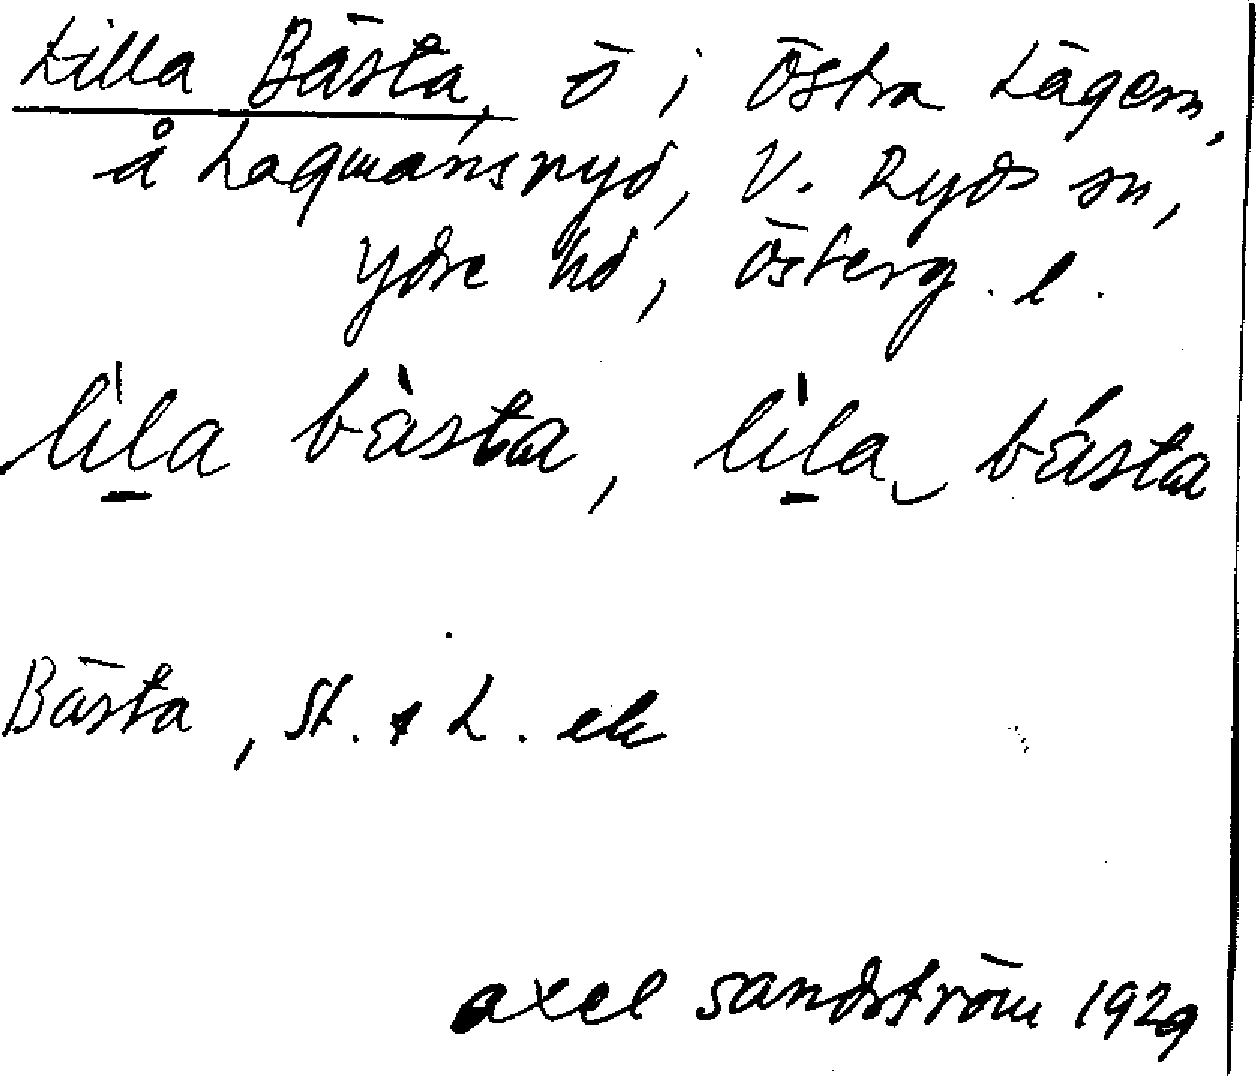 Lilla Bästa, ö i Östra Lägern,
å Lagmansryd, V. Ryds sn,
Ydre hd, Österg. l.
lìl̠a bàsta, lìl̠a‿básta
Bästa, St. & L. ek
Axel Sandström 1929